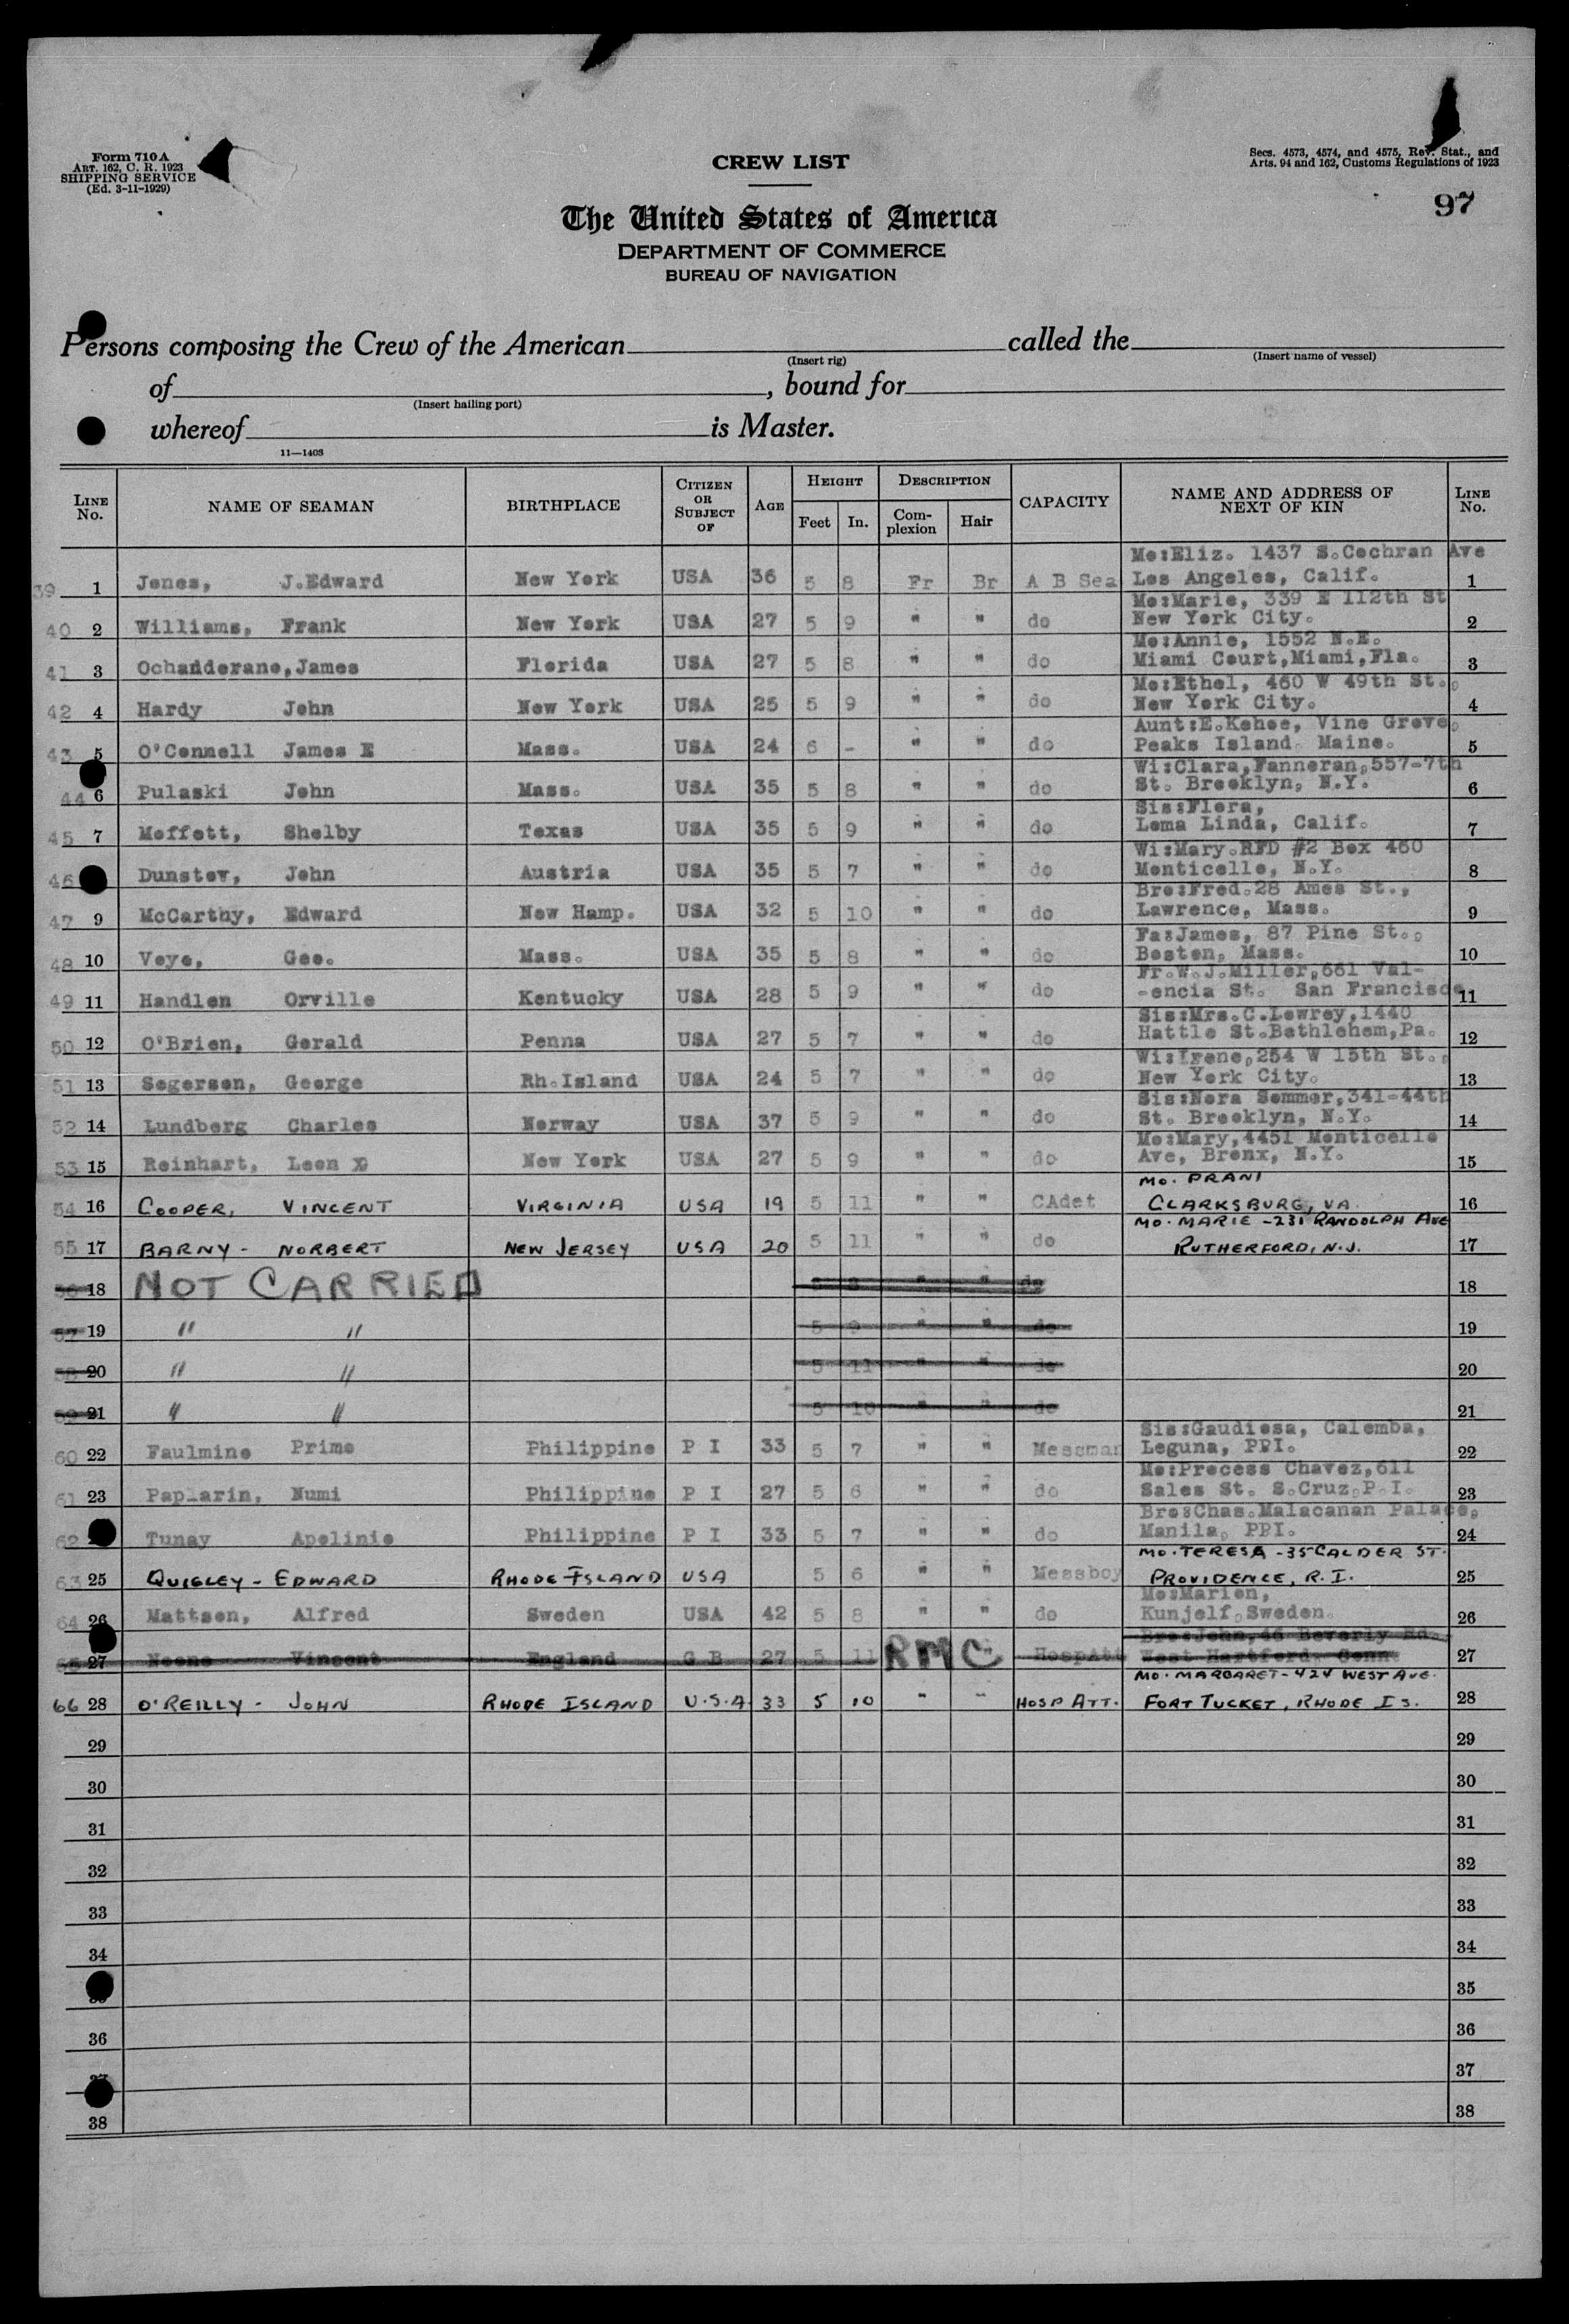 Form 710 A
ART. 162, C. R. 1923
SHIPPING SERVICE
(Ed. 3-11-1929)
CREW LIST
Secs. 4573, 4574, and 4575, Rev. Stat., and
Arts. 94 and 162, Customs Regulations of 1923
97
The United States of America
DEPARTMENT OF COMMERCE
BUREAU OF NAVIGATION
Persons composing the Crew of the American called the
(Insert rig) (Insert name of vessel)
of , bound for
(Insert hailing port)
whereof is Master.
11—1403
LINE No. NAME OF SEAMAN BIRTHPLACE CITIZEN OR SUBJECT OF AGE HEIGHT Feet In. DESCRIPTION Complexion Hair CAPACITY NAME AND ADDRESS OF NEXT OF KIN LINE No.
Mo:Eliz. 1437 S.Cochran Ave
39 1 Jones, J.Edward New York USA 36 5 8 Fr Br A B Sea Los Angeles, Calif. 1
Mo:Marie, 339 E 112th St
40 2 Williams, Frank New York USA 27 5 9 " " do New York City. 2
Mo:Annie, 1552 N.E.
41 3 Ochanderano,James Florida USA 27 5 8 " " do Miami Court,Miami,Fla. 3
Mo:Ethel, 460 W 49th St.,
42 4 Hardy John New York USA 25 5 9 " " do New York City. 4
Aunt:E.Kehoe, Vine Grove,
43 5 O'Connell James E Mass. USA 24 6 - " " do Peaks Island. Maine. 5
Wi:Clara,Fanneran,557-7th
44 6 Pulaski John Mass. USA 35 5 8 " " do St. Brooklyn, N.Y. 6
Sis:Flora,
45 7 Moffett, Shelby Texas USA 35 5 9 " " do Loma Linda, Calif. 7
Wi:Mary.RFD #2 Box 460
46 Dunstov, John Austria USA 35 5 7 " " do Monticello, N.Y. 8
Bro:Fred.28 Ames St.,
47 9 McCarthy, Edward New Hamp. USA 32 5 10 " " do Lawrence, Mass. 9
Fa:James, 87 Pine St.,
48 10 Voye, Geo. Mass. USA 35 5 8 " " do Boston, Mass. 10
Fr.W.J.Miller,661 Val-
49 11 Handlen Orville Kentucky USA 28 5 9 " " do -encia St. San Francisco. 11
Sis:Mrs.C.Lowrey,1440
50 12 O'Brien, Gerald Penna USA 27 5 7 " " do Hattle St.Bethlehem,Pa. 12
Wi:Irene,254 W 15th St.,
51 13 Segerson, George Rh.Island USA 24 5 7 " " do New York City. 13
Sis:Nora Sommer,341-44th
52 14 Lundberg Charles Norway USA 37 5 9 " " do St. Brooklyn, N.Y. 14
Mo:Mary,4451 Monticello
53 15 Reinhart, Leon New York USA 27 5 9 " " do Ave, Bronx, N.Y. 15
MO. PRANI
54 16 COOPER, VINCENT VIRGINIA USA 19 5 11 " " CAdet CLARKSBURG, VA. 16
MO. MARIE -231 RANDOLPH AVE
55 17 BARNY - NORBERT NEW JERSEY USA 20 5 11 " " do RUTHERFORD, N.J. 17
56 18 NOT CARRIED 5 8 " " do 18
57 19 " " 5 9 " " do 19
58 20 " " 5 11 " " do 20
59 21 " " 5 10 " " do 21
Sis:Gaudiosa, Calamba,
60 22 Faulmino Primo Philippine P I 33 5 7 " " Messman Leguna, PPI. 22
Mo:Process Chavez,611
61 23 Paplarin, Numi Philippine P I 27 5 6 " " do Sales St. S.Cruz,P.I. 23
Bro:Chas.Malacanan Palace,
62 Tunay Apolinio Philippine P I 33 5 7 " " do Manila, PPI. 24
MO. TERESA -35 CALDER ST.
63 25 QUIGLEY - EDWARD RHODE ISLAND USA 5 6 " " Messboy PROVIDENCE, R.I. 25
Mo:Marion,
64 26 Mattson, Alfred Sweden USA 42 5 8 " " do Kunjelf,Sweden. 26
Bro:John,46 Beverly Rd.
65 27 Noone Vincent England G B 27 5 11 RMC " HospAtt West Hartford, Conn. 27
MO. MARGARET - 424 WEST AVE.
66 28 O'REILLY - JOHN RHODE ISLAND U.S.A. 33 5 10 " " HOSP ATT. FORT TUCKET, RHODE IS. 28
29 29
30 30
31 31
32 32
33 33
34 34
35
36 36
37 37
38 38